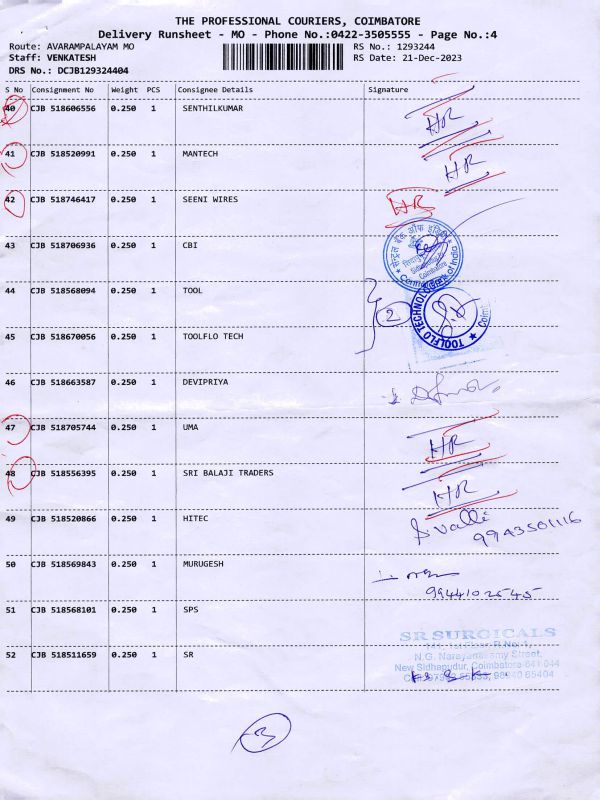 THE PROFESSIONAL COURIERS, COIMBATORE
Delivery Runsheet - MO - Phone No.:0422-3505555 - Page No.:4
Route: AVARAMPALAYAM MO RS No.: 1293244
Staff: VENKATESH RS Date: 21-Dec-2023
DRS No.: DCJB129324404
S No Consignment No Weight PCS Consignee Details Signature
40 CJB 518606556 0.250 1 SENTHILKUMAR HR
41 CJB 518520991 0.250 1 MANTECH HR
42 CJB 518746417 0.250 1 SEENI WIRES HR
43 CJB 518706936 0.250 1 CBI
सेन्ट्रल बैंक ऑफ इंडिया
Coimbatore
Central Bank of India
44 CJB 518568094 0.250 1 TOOL 2
TOOLFLO TECHNOLOGIES
45 CJB 518670056 0.250 1 TOOLFLO TECH
46 CJB 518663587 0.250 1 DEVIPRIYA
47 CJB 518705744 0.250 1 UMA HR
48 CJB 518556395 0.250 1 SRI BALAJI TRADERS HR
49 CJB 518520866 0.250 1 HITEC S. Valli
9943501116
50 CJB 518569843 0.250 1 MURUGESH
9944102545
51 CJB 518568101 0.250 1 SPS
SR SURGICALS
52 CJB 518511659 0.250 1 SR
N.G. Narayanasamy Street,
New Sidhapudur, Coimbatore-641 044
98940 65404